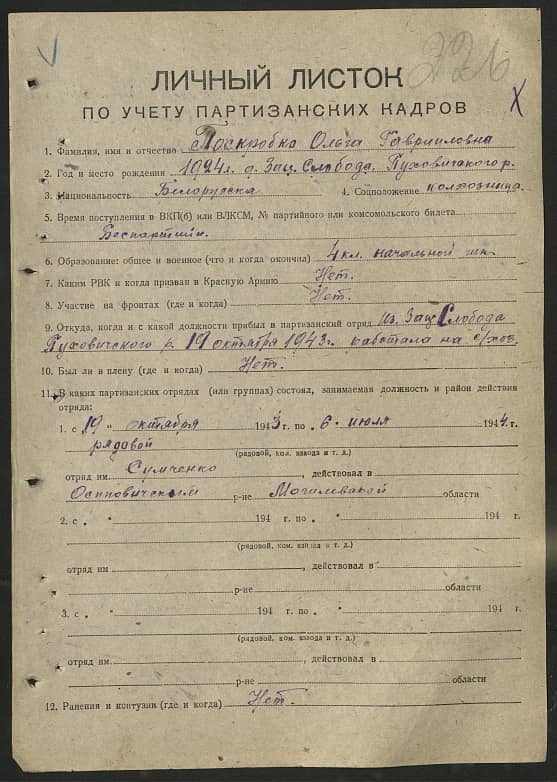 226
ЛИЧНЫЙ ЛИСТОК
ПО УЧЕТУ ПАРТИЗАНСКИХ КАДРОВ
1. Фамилия, имя и отчество Поскробко Ольга Гаврииловна
2. Год и место рождения 1924г. д. Зац. Слобода. Пуховичского р.
3. Национальность Белорусска 4. Соцположение колхозница.
5. Время поступления в ВКП(б) или ВЛКСМ, № партийного или комсомольского билета
Беспартийн.
6. Образование: общее и военное (что и когда окончил) 4 кл. начальной шк.
7. Каким РВК и когда призван в Красную Армию Нет.
8. Участие на фронтах (где и когда) Нет.
9. Откуда, когда и с какой должности прибыл в партизанский отряд Из Зац. Слобода
Пуховичского р. 19 октября 1943г. работала на с/хоз.
10. Был ли в плену (где и когда) Нет.
11. В каких партизанских отрядах (или группах) состоял, занимаемая должность и район действия
отряда:
1. с „19 „ октября 1943 г. по „ 6 „ июля 1944 г.
рядовой
(рядовой, ком. взвода и т. д.)
отряд им. Сумченко, действовал в
Осиповичским р-не Могилевской области
2. с „ “ 194 г. по „ “ 194 г.
(рядовой, ком. взвода и т. д.)
отряд им , действовал в
р-не области
3. с „ “ 194 г. по „ “ 194 г.
(рядовой, ком. взвода и т. д.)
отряд им. , действовал в
р-не области
12. Ранения и контузии (где и когда) Нет.